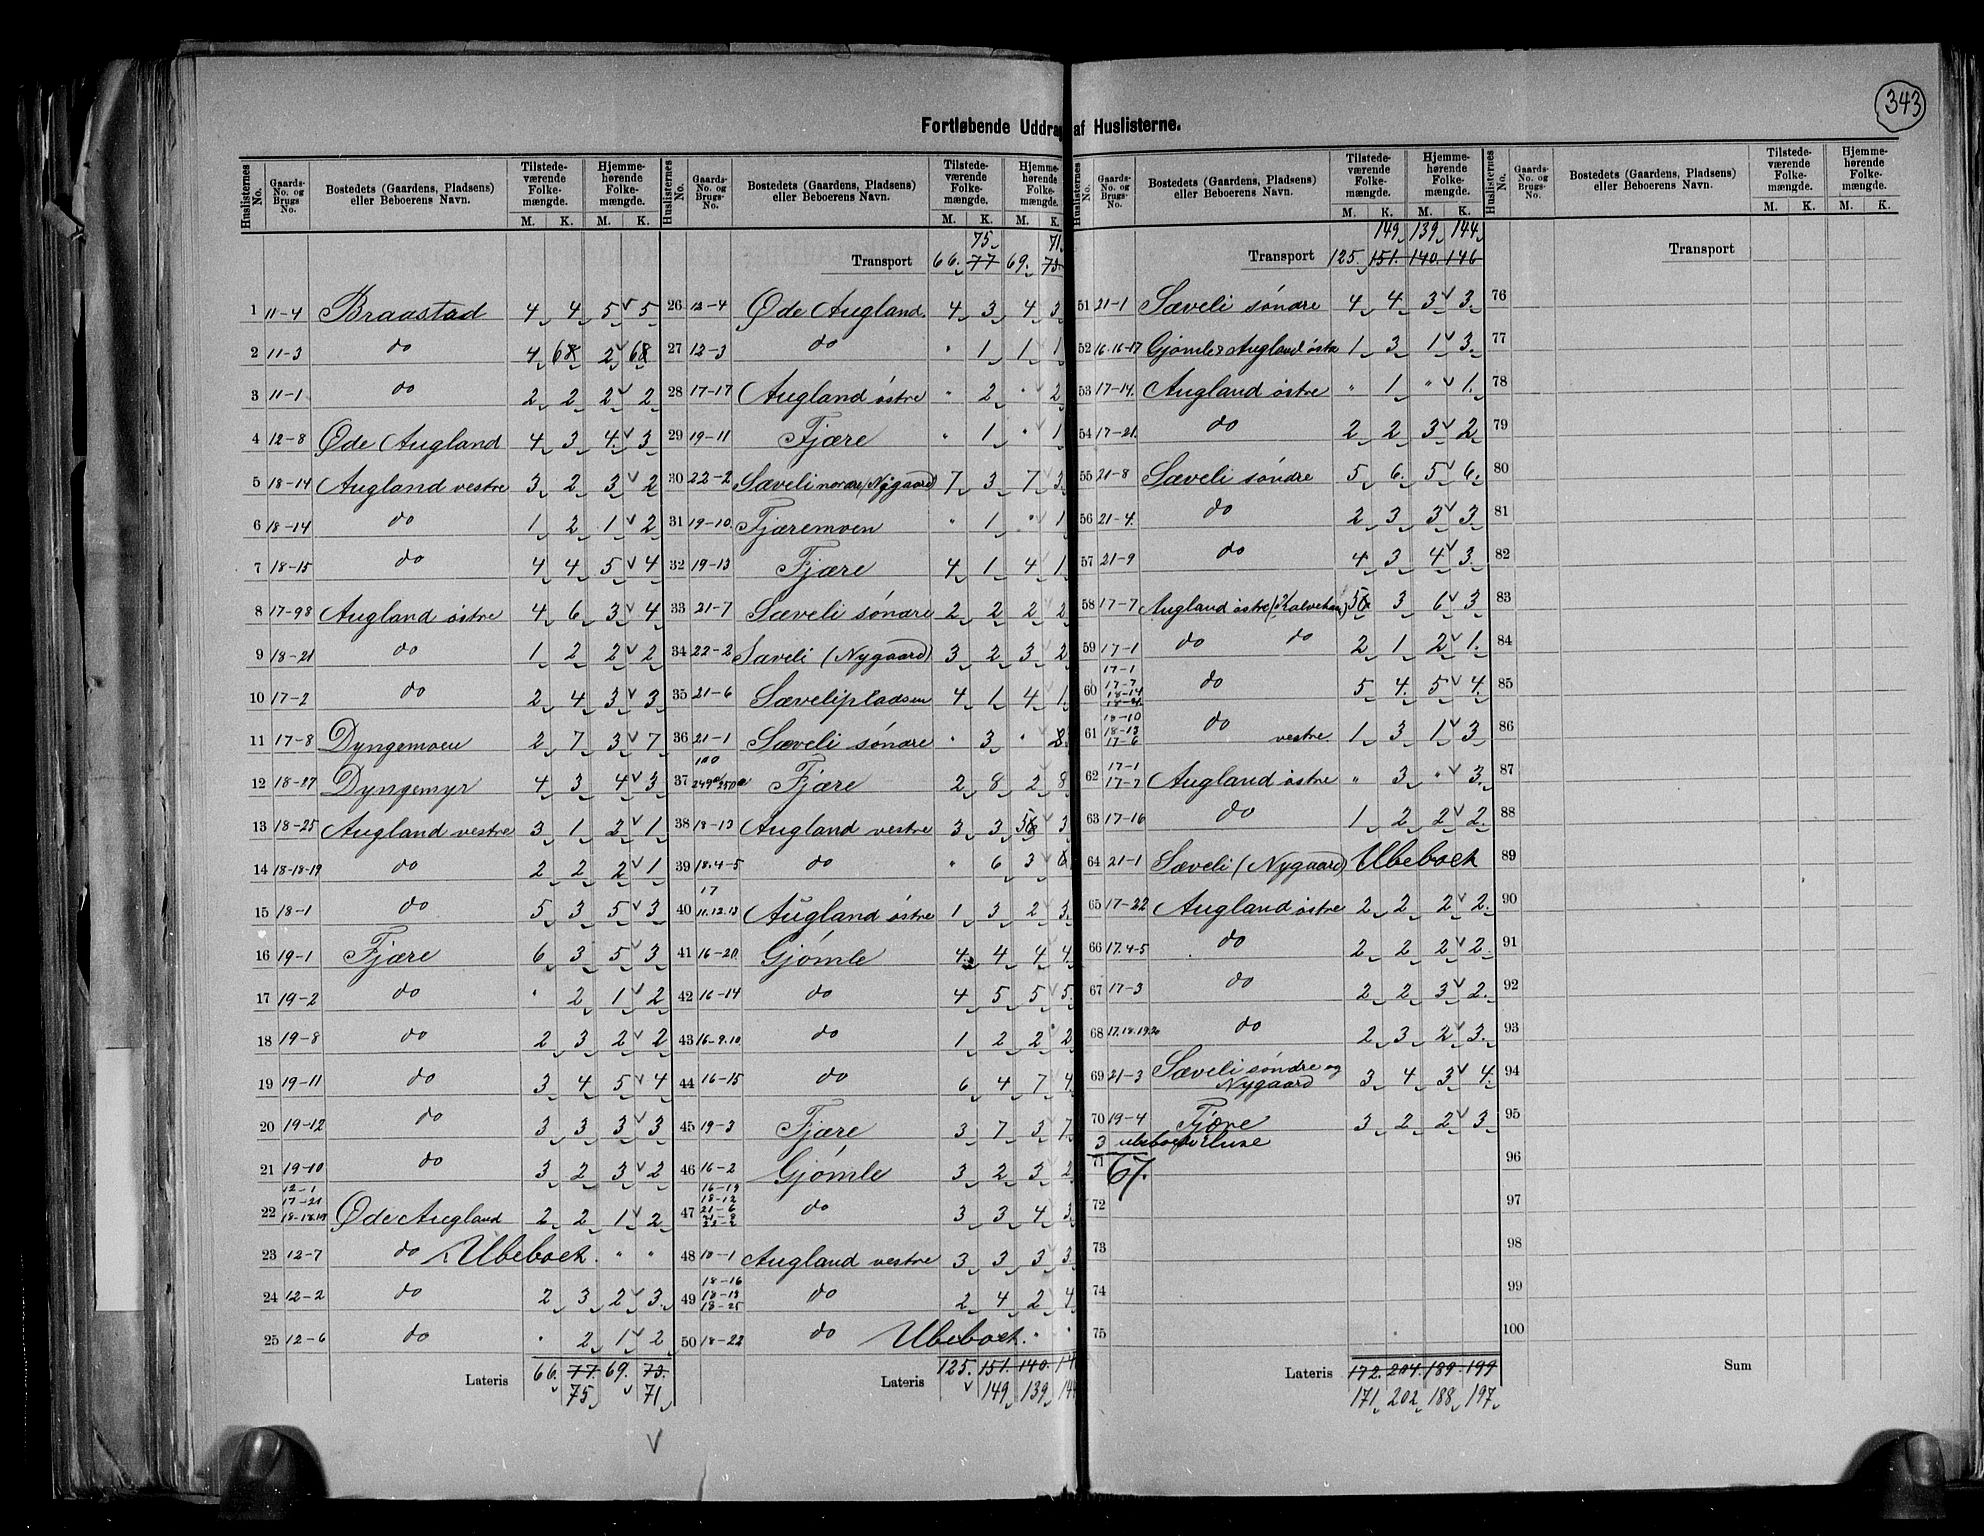 343
Fortløbende Uddrag af Huslisterne.
Huslisternes No. Gaards-No. og Brugs-No. Bostedets (Gaardens, Pladsens) eller Beboerens Navn. Tilstedeværende Folkemængde. M. K. Hjemmehørende Folkemængde. M. K.
1 11-4 Braastad 4 4 5 5
2 11-3 do 4 6 2 6
3 11-1 do 2 2 2 2
4 12-8 Øde Augland 4 3 4 3
5 18-14 Augland vestre 3 2 3 2
6 18-14 do 1 2 1 2
7 18-15 do 4 4 5 4
8 17-98 Augland østre 4 6 3 4
9 18-21 do 1 2 2 2
10 17-2 do 2 4 3 3
11 17-8 Dyngemoen 2 7 3 7
12 18-17 Dyngemyr 4 3 4 3
13 18-25 Augland vestre 3 1 2 1
14 18-18-19 do 2 2 2 1
15 18-1 do 5 3 5 3
16 19-1 Fjære 6 3 5 3
17 19-2 do " 2 1 2
18 19-8 do 2 3 2 2
19 19-11 do 3 4 5 4
20 19-12 do 3 3 3 3
21 19-10 do 3 2 3 2
12-1
17-21
22 18-18.19 Øde Augland 2 2 1 2
23 12-7 do Ubeboet. " "
24 12-2 do 2 3 2 3.
25 12-6 do " 2 1 2
Lateris 66. 77. 69. 73.
75 71
Huslisternes No. Gaards-No. og Brugs-No. Bostedets (Gaardens, Pladsens) eller Beboerens Navn. Tilstedeværende Folkemængde. M. K. Hjemmehørende Folkemængde. M. K.
75 71
Transport 66. 77 69. 73
26 12-4 Øde Augland. 4 3 4 3
27 12-3 do " 1 1 1
28 17-17 Augland østre " 2 " 2
29 19-11 Fjære " 1 " 1
30 22-2 Sæveli nordre (Nygaard) 7 3 7 3
31 19-10. Fjæremoen " 1 " 1
32 19-13 Fjære 4 1 4 1
33 21-7 Sæveli søndre 2 2 2 2
34 22-2 Sæveli (Nygaard) 3 2 3 2
35 21-6 Sævelipladsen 4 1 4 1
36 21-1 Sæveli søndre " 3 "
100
37 249 a/250 a Fjære 2 8 2 8
38 18-13 Augland vestre 3 3 5 3
39 18.4-5 do " 6 3 6
17
40 11.12.13 Augland østre 1 3 2 3
41 16-20 Gjømle 4 4 4 4
42 16-14 do 4 5 5 5.
43 16-9.10 do 1 2 2 2
44 16-15 do 6 4 7 4
45 19-3 Fjære 3 7 3 7
46 16-2 Gjømle 3 2 3 2
16-19
18-12
47 21-6 do 3 3 4 3
21-8
22-2
48 18-1 Augland vestre 3 3 3 3
18-16
49 18-18 do 2 4 2 4
18-25
50 18-22 do Ubeboet. " "
Lateris 125. 151. 140. 14
149 139 14
Huslisternes No. Gaards-No. og Brugs-No. Bostedets (Gaardens, Pladsens) eller Beboerens Navn. Tilstedeværende Folkemængde. M. K. Hjemmehørende Folkemængde. M. K.
149 139 144
Transport 125. 151. 140. 146
51 21-1 Sæveli søndre 4 4 3 3.
52 16.16-17 Gjømle & Augland østre 1 3 1 3.
53 17-14. Augland østre " 1 " 1.
54 17-21. do 2 2 3 2
55 21-8 Sæveli søndre 5 6. 5 6.
56 21-4. do 2 3 3 3
57 21-9 do 4 3 4 3.
58 17-7 Augland østre 5 3 6 3
59 17-1 do do 2 1 2 1.
17-1
17-7
60 18-14 do 5 4. 5 4.
18-21
18-10
61 18-13 do vestre 1 3 1 3
17-6
17-1
62 17-7 Augland østre " 3 " 3.
63 17-16 do 1 2 2 2.
64 21-1 Sæveli (Nygaard) Ubeboet
65 17-22 Augland østre 2 2 2 2.
66 17.4-5 do 2 2 2 2.
67 17-3 do 2 2 3 2.
68 17.18.19.20 do 2 3 2 3.
69 21-3 Sæveli søndre og Nygaard 3 4 3 4.
70 19-4 Fjære 3 2 2 3
3 ubeboede Huse
71 67.
72
73
74
75
Lateris 172. 204. 189. 199
171 202 188 197
Huslisternes No. Gaards-No. og Brugs-No. Bostedets (Gaardens, Pladsens) eller Beboerens Navn. Tilstedeværende Folkemængde. M. K. Hjemmehørende Folkemængde. M. K.
Transport
76
77
78
79
80
81
82
83
84
85
86
87
88
89
90
91
92
93
94
95
96
97
98
99
100
Sum